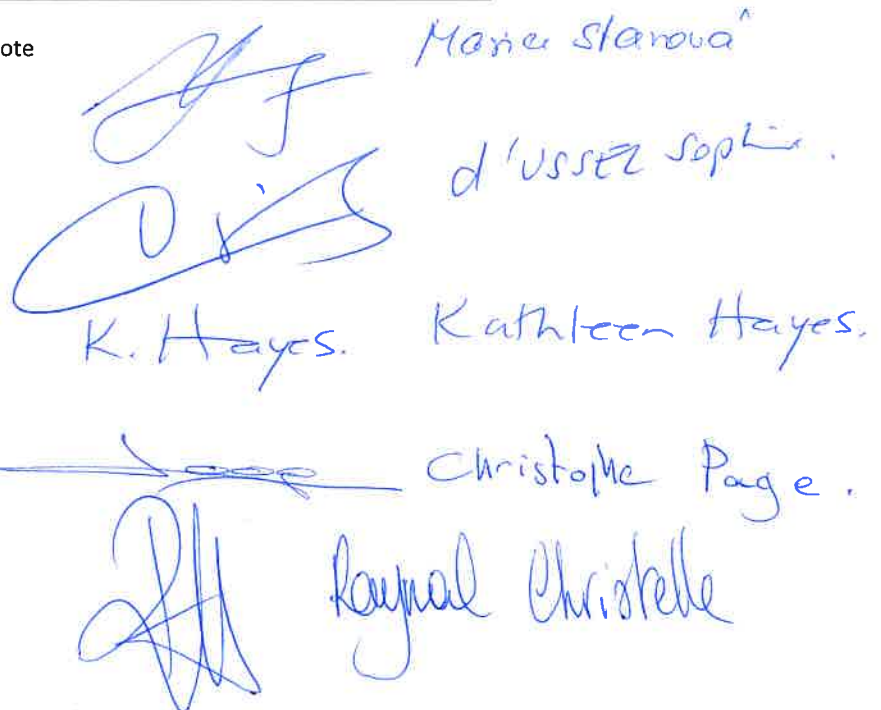 ote
Starová
d'USSEL Sophie.
K. Hayes. Kathleen Hayes.
Christophe Page.
Raynal Christelle